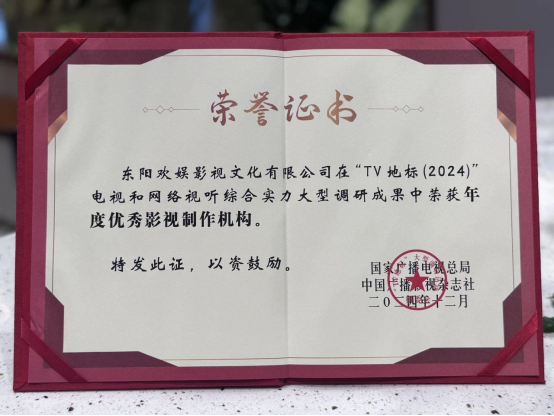 荣誉证书
东阳欢娱影视文化有限公司在“TV地标(2024)”
电视和网络视听综合实力大型调研成果中荣获年
度优秀影视制作机构。
特发此证，以资鼓励。
国家广播电视总局
中国广播电视杂志社
二〇二四年十二月